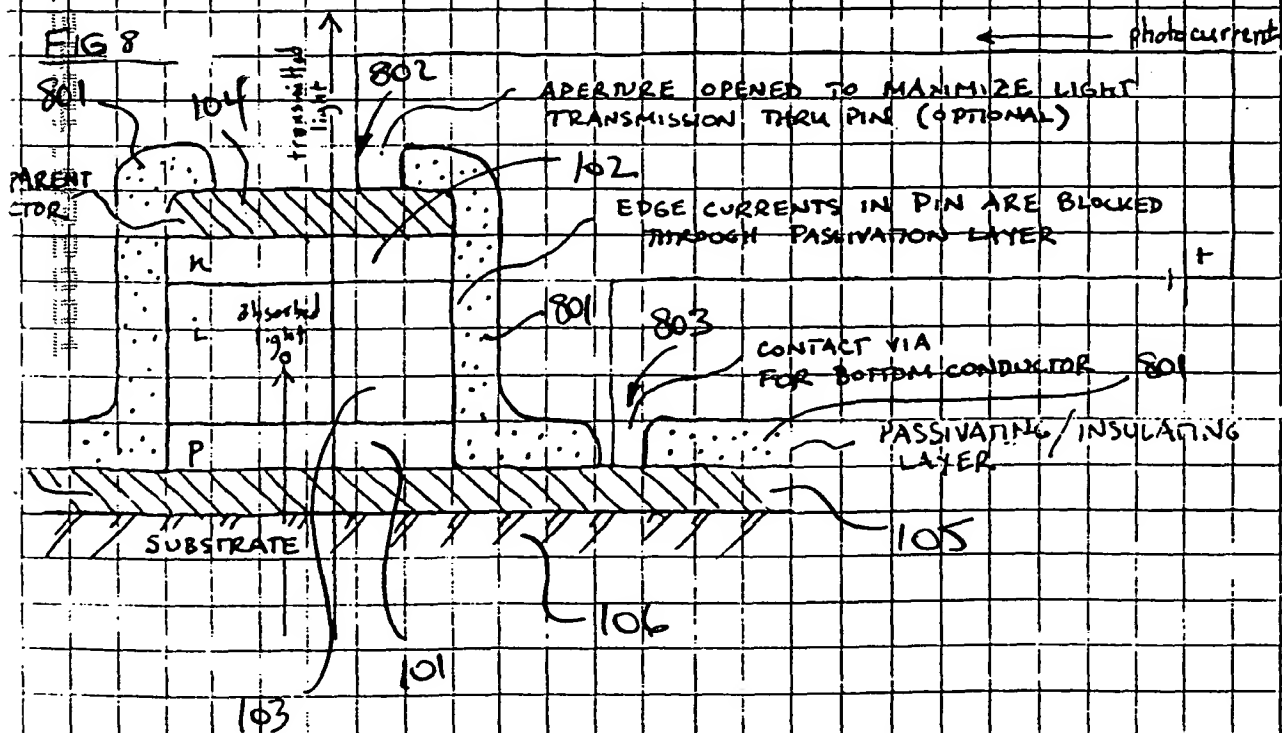 FIG 8
photocurrent
801
104
transmitted
light
802
APERTURE OPENED TO MAXIMIZE LIGHT
TRANSMISSION THRU PIN (OPTIONAL)
PARENT
CTOR
102
EDGE CURRENTS IN PIN ARE BLOCKED
THROUGH PASSIVATION LAYER
n
+
i
absorbed
light
801
803
CONTACT VIA
FOR BOTTOM CONDUCTOR
801
PASSIVATING/INSULATING
LAYER
P
SUBSTRATE
105
106
101
103